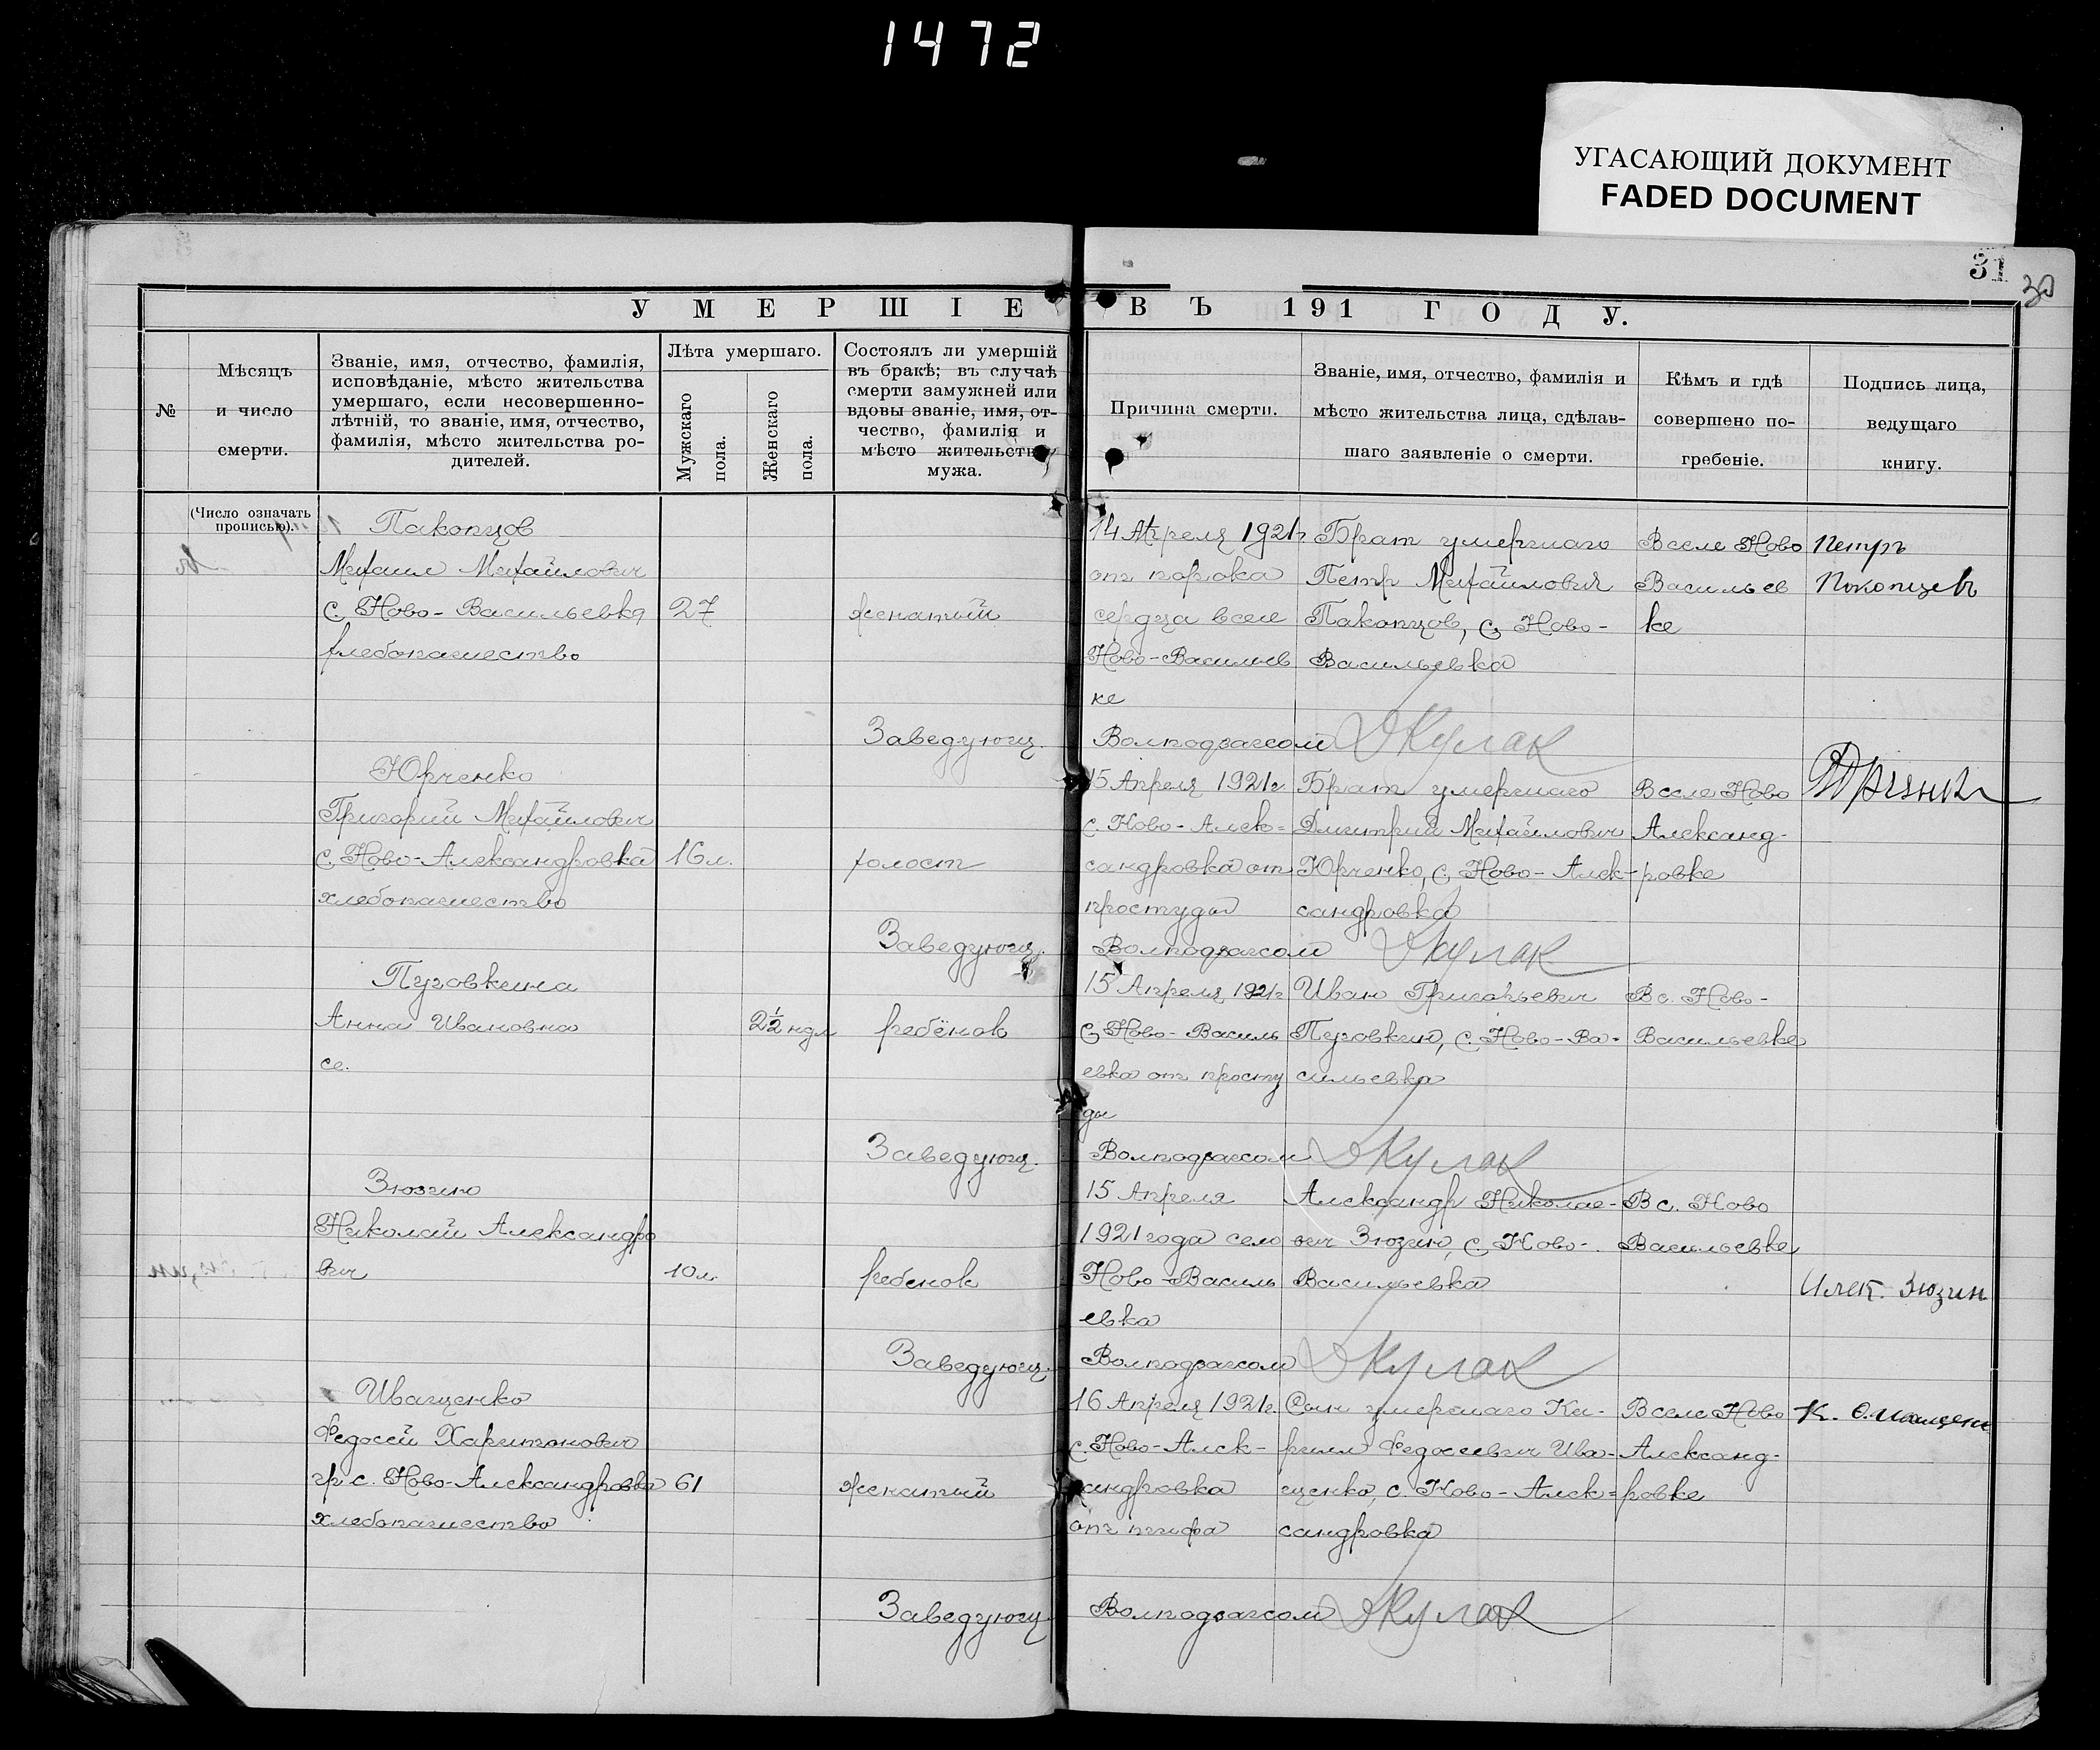 1472
УГАСАЮЩИЙ ДОКУМЕНТ
FADED DOCUMENT
31
30
УМЕРШІЕ ВЪ 191 ГОДУ.
№
Мѣсяцъ
и число
смерти.
Званіе, имя, отчество, фамилія,
исповѣданіе, мѣсто жительства
умершаго, если несовершенно-
лѣтній, то званіе, имя, отчество,
фамилія, мѣсто жительства ро-
дителей.
Лѣта умершаго.
Мужскаго
пола.
Женскаго
пола.
Состоялъ ли умершій
въ бракѣ; въ случаѣ
смерти замужней или
вдовы званіе, имя, от-
чество, фамилія и
мѣсто жительства
мужа.
Причина смерти.
Званіе, имя, отчество, фамилія и
мѣсто жительства лица, сдѣлав-
шаго заявленіе о смерти.
Кѣмъ и гдѣ
совершено по-
гребеніе.
Подпись лица,
ведущаго
книгу.
(Число означать
прописью).
Пакопцов
Михаил Михайлович
с. Ново-Васильевка
хлебопашество
27
женатый
14 Апреля 1921г.
от порока
сердца в селе
Ново-Васильев
ке
Брат умершаго
Петр Михайлович
Пакопцов, с. Ново-
Васильевка
В селе Ново
Васильев
ке
Петръ
Покопцевъ
Заведующ. Волподзагсом Кулак
Юрченко
Григорий Михайлович
с. Ново-Александровка
хлебопашество
16 л.
холост
15 Апреля 1921г.
с. Ново-Алек=
сандровка от
простуды
Брат умершаго
Дмитрий Михайлович
Юрченко, с. Ново-Алек-
сандровка
В селе Ново
Александ-
ровке
Заведующ. Волподзагсом Кулак
Пуговкина
Анна Ивановна
се.
2½ ндл
ребёнок
15 Апреля 1921г
с. Ново-Василь
евка от просту
ды
Иван Григорьевич
Пуговкин, с. Ново-Ва-
сильевка
В с. Ново-
Васильевке
Заведующ. Волподзагсом Кулак
Зюзин
Николай Александро
вич
10 л.
ребенок
15 Апреля
1921 года село
Ново-Василь
евка
Александр Николае-
вич Зюзин, с. Ново-
Васильевка
В с. Ново
Васильевке
Алек. Зюзин
Заведующ. Волподзагсом Кулак
Иващенко
Федосей Харитонович
гр. с. Ново-Александровка
хлебопашество
61
женатый
16 Апреля 1921г.
с. Ново-Алек-
сандровка
от тифа
Сын умершаго Ки-
рилл Федосеевич Ива-
щенко, с. Ново-Алек=
сандровка
В селе Ново
Александ-
ровке
Заведующ. Волподзагсом Кулак